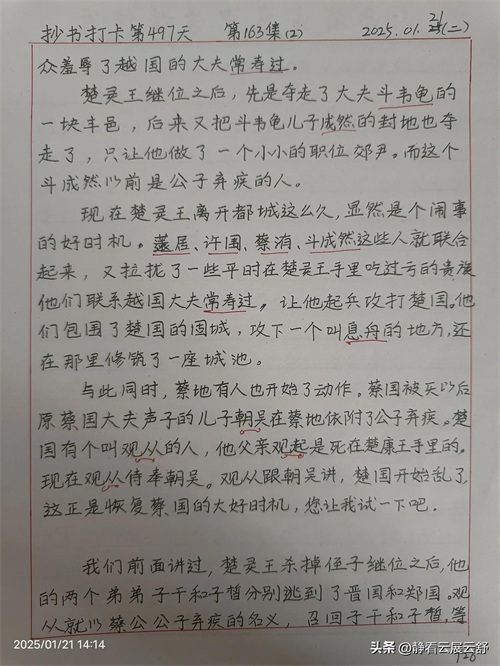 抄书打卡第497天 第163集(2) 2025.01.21(二)
众羞辱了越国的大夫常寿过。
楚灵王继位之后，先是夺走了大夫斗韦龟的
一块丰邑，后来又把斗韦龟儿子成然的封地也夺
走了，只让他做了一个小小的职位郊尹。而这个
斗成然以前是公子弃疾的人。
现在楚灵王离开都城这么久，显然是个闹事
的好时机。薳居、许围、蔡洧、斗成然这些人就联合
起来，又拉拢了一些平时在楚灵王手里吃过亏的贵族
他们联系越国大夫常寿过，让他起兵攻打楚国。他
们包围了楚国的固城，攻下一个叫息舟的地方，还
在那里修筑了一座城池。
与此同时，蔡地有人也开始了动作。蔡国被灭以后
原蔡国大夫声子的儿子朝吴在蔡地依附了公子弃疾。楚
国有个叫观从的人，他父亲观起是死在楚康王手里的。
现在观从侍奉朝吴。观从跟朝吴讲，楚国开始乱了
这正是恢复蔡国的大好时机，您让我试一下吧。
我们前面讲过，楚灵王杀掉侄子继位之后，他
的两个弟弟子干和子皙分别逃到了晋国和郑国。观
从就以蔡公公子弃疾的名义，召回子干和子皙，等
2025/01/21 14:14
头条 @静看云展云舒